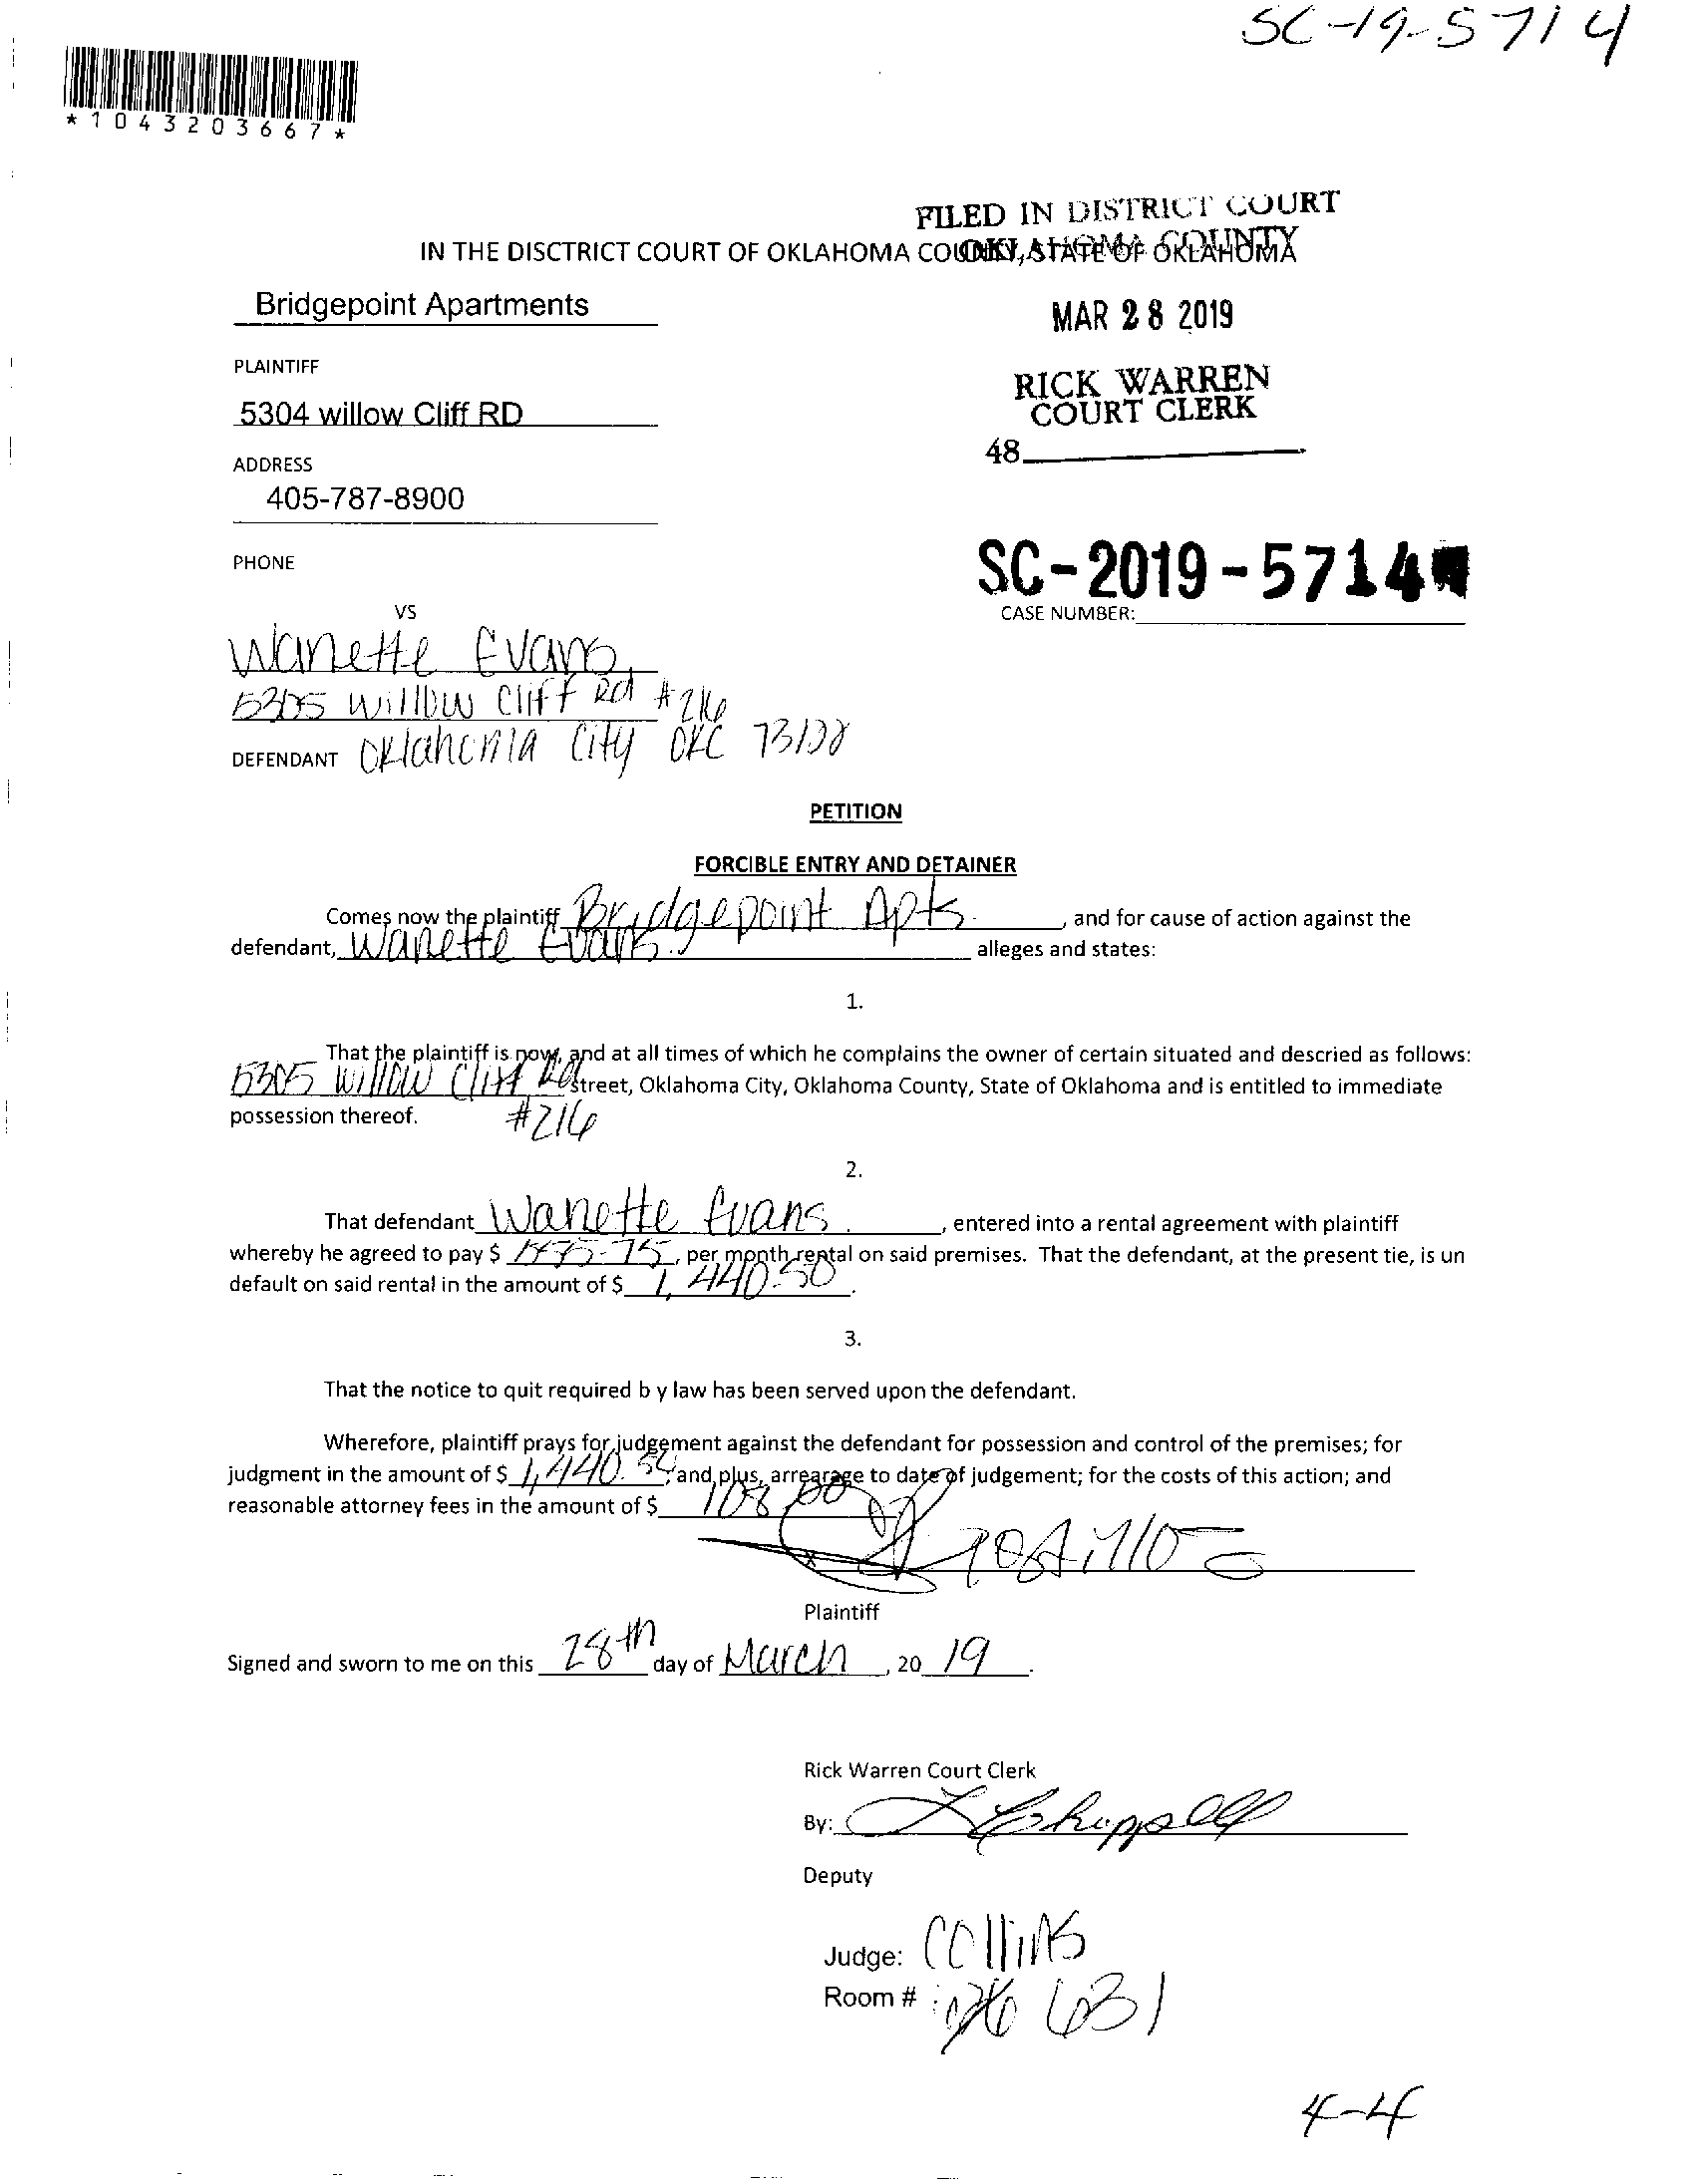 SC-19-5714
*1043203667*
FILED IN DISTRICT COURT
OKLAHOMA COUNTY
IN THE DISCTRICT COURT OF OKLAHOMA COUNTY, STATE OF OKLAHOMA
Bridgepoint Apartments
MAR 28 2019
PLAINTIFF
RICK WARREN
COURT CLERK
5304 willow Cliff RD
48
ADDRESS
405-787-8900
PHONE
SC-2019-5714
CASE NUMBER:
VS
Wanette Evans
5305 Willow Cliff Rd #216
DEFENDANT Oklahoma City OKC
PETITION
FORCIBLE ENTRY AND DETAINER
Comes now the plaintiff Bridgepoint Apts. , and for cause of action against the
defendant, Wanette Evans. alleges and states:
1.
That the plaintiff is now, and at all times of which he complains the owner of certain situated and descried as follows:
5305 Willow Cliff Rd street, Oklahoma City, Oklahoma County, State of Oklahoma and is entitled to immediate
possession thereof. #216
2.
That defendant Wanette Evans. , entered into a rental agreement with plaintiff
whereby he agreed to pay $ , per month rental on said premises. That the defendant, at the present tie, is un
default on said rental in the amount of $ 1,440.50.
3.
That the notice to quit required b y law has been served upon the defendant.
Wherefore, plaintiff prays for judgement against the defendant for possession and control of the premises; for
judgment in the amount of $ 1,440.50, and plus, arrearage to date of judgement; for the costs of this action; and
reasonable attorney fees in the amount of $ 108.00
x
Plaintiff
Signed and sworn to me on this 28th day of March, 20 19.
Rick Warren Court Clerk
By: Chappell
Deputy
Judge: Collins
Room #: 631
4-4